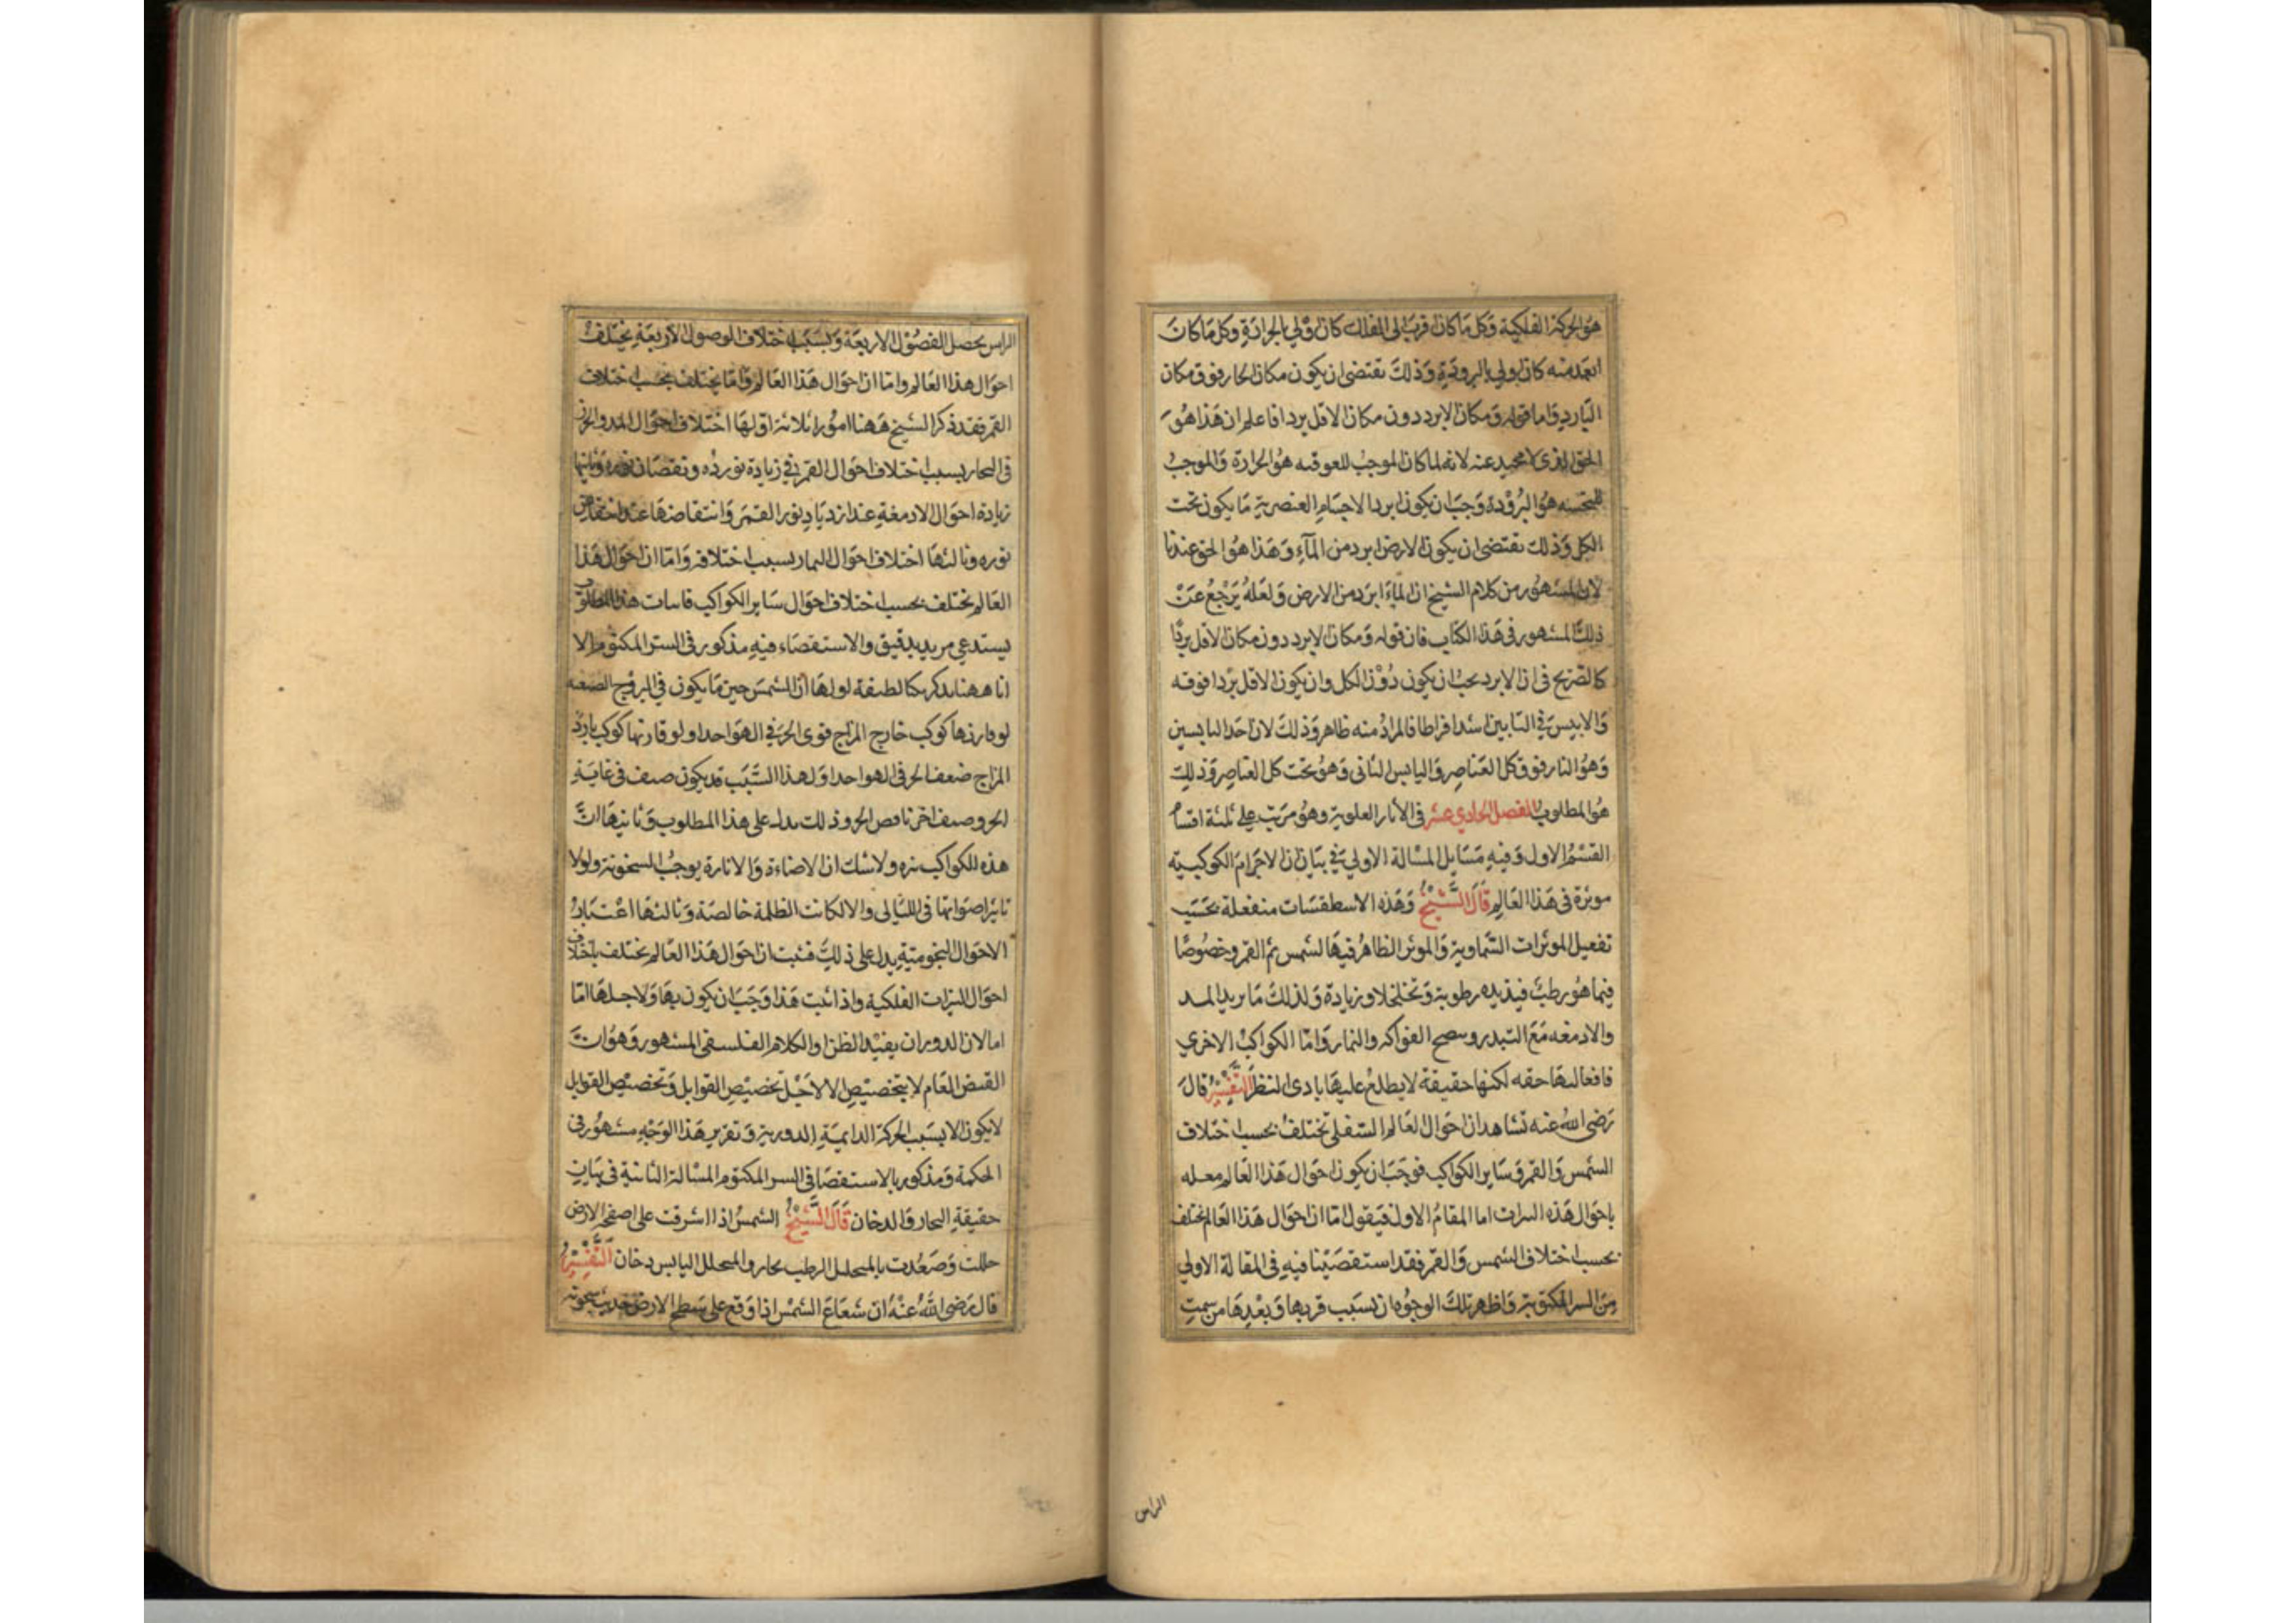 هو الحركة الفلكية وكل ما كان قربا الى الفلك كان اولي بالحرارة وكل ما كان
ابعد منه كان اولي بالبرودة وذلك يقتضى ان يكون مكان الحار فوق مكان
البارد واما قوله ومكان الابرد دون مكان الاقل بردا فاعلم ان هذا هو
الحق الذى لا محيد عنه لانه لما كان الموجب للعوقبه هو الحرارة والموجب
هو البرودة وجب ان يكون ابرد الاجسام العنصرية ما يكون تحت
الكل وذلك يقتضى ان يكون الارض ابرد من المآء وهذا هو الحق عندنا
لان المشهور من كلام الشيخ ان المآء ابرد من الارض ولعله يرجع عن
ذلك المشهور فى هذا الكتاب فان قوله ومكان الابرد دون مكان الاقل بردا
كالصريح فى ان الابرد يجب ان يكون دون الكل وان يكون الاقل بردا فوقه
والايبس في اليابسين اشد افراطا فالمراد منه ظاهر وذلك لان احد اليابسين
وهو النار فوق كل العناصر واليابس الثانى وهو تحت كل العناصر وذلك
هو المطلوب الفصل الحادي عشر فى الآثار العلوية وهو مرتب على ثلثة اقسام
القسم الاول وفيه مسايل المسالة الاولي في بيان ان الاجرام الكوكبية
موثرة فى هذا العالم قال الشيخ وهذه الاسطقسات منفعلة بحسب
تفعيل الموثرات السماوية والموثر الظاهر فيها الشمس ثم القمر وخصوصا
فيما هو رطب فيزيده رطوبة وتخلخلا وزيادة ولذلك ما يزيد المد
والادمغه مع التبدر وينضج الفواكه والثمار واما الكواكب الاخري
فافعالها حقه لكنها حقيقة لا يطلع عليها بادى النظر التفسير قال
رضى الله عنه نشاهد ان احوال العالم السفلى تختلف بحسب اختلاف
الشمس والقمر وساير الكواكب فوجب ان يكون احوال هذا العالم معلله
باحوال هذه النيرات اما المقام الاول فيقول اما ان احوال هذا العالم تختلف
بحسب اختلاف الشمس والقمر فقد استقصينا فيه فى المقالة الاولي
من السر المكتوم واظهر تلك الوجوه ان بسبب قربها وبعدها من سمت
الراس
الراس يحصل الفصول الاربعة وبسبب اختلاف الفصول الاربعة يختلف
احوال هذا العالم واما ان احوال هذا العالم واما يختلف بحسب اختلاف
القمر فقد ذكر الشيخ ههنا امورا ثلاثة اولها اختلاف احوال المد والجزر
فى البحار بسبب اختلاف احوال القمر في زيادة نوره ونقصان نوره وثانيها
زيادة احوال الادمغة عند ازدياد نور القمر وانتقاضها عند انتقاض
نوره وثالثها اختلاف احوال الثمار بسبب اختلافه واما ان احوال هذا
العالم تختلف بحسب اختلاف احوال ساير الكواكب فاثبات هذا المطلوب
يستدعى مزيد تدقيق والاستقصاء فيه مذكور فى السر المكتوم الا
انا ههنا نذكر نكتا لطيفة اولها ان الشمس حين ما يكون في البروج الصيفية
لو قارنها كوكب حار المزاج قوى الحر في الهوا جدا ولو قارنها كوكب بارد
المزاج ضعف الحر فى الهوا جدا ولهذا السبب قد يكون صيف فى غاية
الحر وصيف اخر ناقص الحر وذلك يدل على هذا المطلوب وثانيها ان
هذه الكواكب نيره ولا شك ان الاضاءة والانارة يوجب السخونة ولولا
تاثير اضوائها فى الليالى والا لكانت الظلمة خالصة وثالثها اعتبار
الاحوال النجومية يدل على ذلك فثبت ان احوال هذا العالم تختلف باختلاف
احوال النيرات الفلكية واذا ثبت هذا وجب ان يكون بها ولاجلها اما
اما لان الدوران يفيد الظن او الكلام الفلسفى المشهور وهو ان
الفيض العام لا يتخصص الا لاجل تخصيص القوابل وتخصيص القوابل
لا يكون الا بسبب الحركة الدايمية الدورية وتقرير هذا الوجه مشهور فى
الحكمة ومذكور بالاستقصا فى السر المكتوم المسالة الثانية فى بيان
حقيقة البخار والدخان قال الشيخ الشمس اذا اشرقت على صفحة الارض
حللت وصعدت بالمتحلل الرطب بخار والمتحلل اليابس دخان التفسير
قال رضى الله عنه ان شعاع الشمس اذا وقع على سطح الارض حدثت سخونة